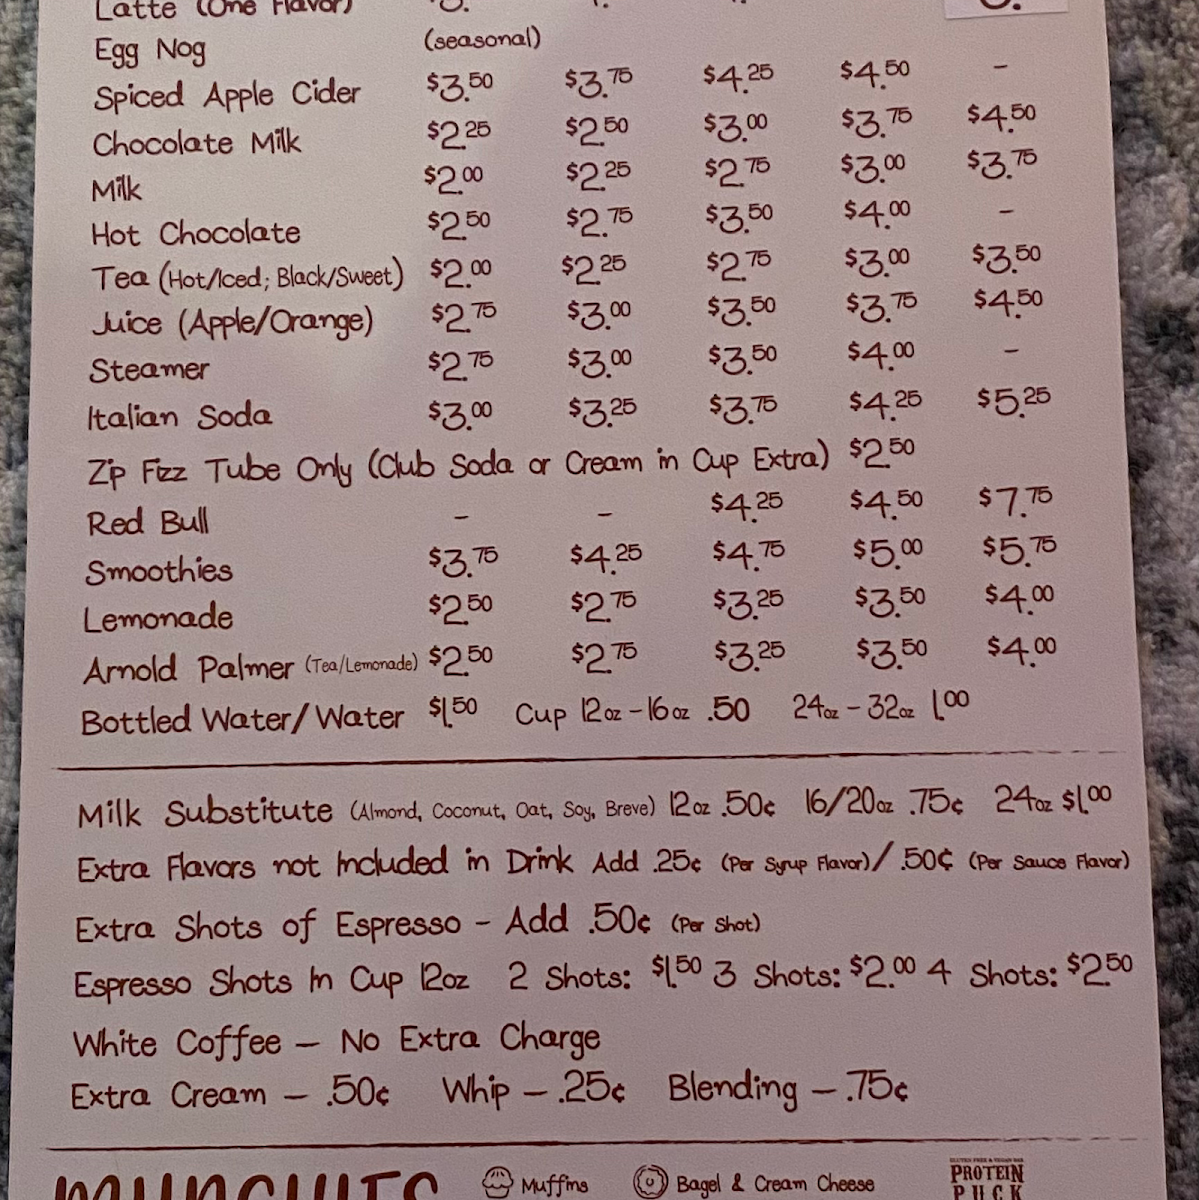 Latte (One Flavor)
Egg Nog (seasonal)
Spiced Apple Cider $3.50 $3.75 $4.25 $4.50 -
Chocolate Milk $2.25 $2.50 $3.00 $3.75 $4.50
Milk $2.00 $2.25 $2.75 $3.00 $3.75
Hot Chocolate $2.50 $2.75 $3.50 $4.00 -
Tea (Hot/Iced; Black/Sweet) $2.00 $2.25 $2.75 $3.00 $3.50
Juice (Apple/Orange) $2.75 $3.00 $3.50 $3.75 $4.50
Steamer $2.75 $3.00 $3.50 $4.00 -
Italian Soda $3.00 $3.25 $3.75 $4.25 $5.25
Zip Fizz Tube Only (Club Soda or Cream in Cup Extra) $2.50
Red Bull - - $4.25 $4.50 $7.75
Smoothies $3.75 $4.25 $4.75 $5.00 $5.75
Lemonade $2.50 $2.75 $3.25 $3.50 $4.00
Arnold Palmer (Tea/Lemonade) $2.50 $2.75 $3.25 $3.50 $4.00
Bottled Water/Water $1.50 Cup 12oz-16oz .50 24oz-32oz 1.00
Milk Substitute (Almond, Coconut, Oat, Soy, Breve) 12oz .50¢ 16/20oz .75¢ 24oz $1.00
Extra Flavors not Included in Drink Add .25¢ (Per Syrup Flavor)/ .50¢ (Per Sauce Flavor)
Extra Shots of Espresso - Add .50¢ (Per Shot)
Espresso Shots In Cup 12oz 2 Shots: $1.50 3 Shots: $2.00 4 Shots: $2.50
White Coffee - No Extra Charge
Extra Cream - .50¢ Whip - .25¢ Blending - .75¢
Muffins Bagel & Cream Cheese PROTEIN
PUCK